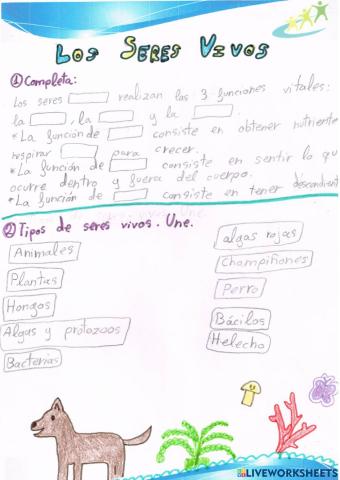 LOS SERES VIVOS
① Completa:
Los seres realizan las 3 funciones vitales:
la , la y la .
*La función de consiste en obtener nutriente
respirar para crecer.
*La función de consiste en sentir lo que
ocurre dentro y fuera del cuerpo.
*La función de consiste en tener descendient
② Tipos de seres vivos. Une.
Animales
Plantas
Hongos
Algas y protozoos
Bacterias
algas rojas
Champiñones
Perro
Bácilos
Helecho
LIVEWORKSHEETS